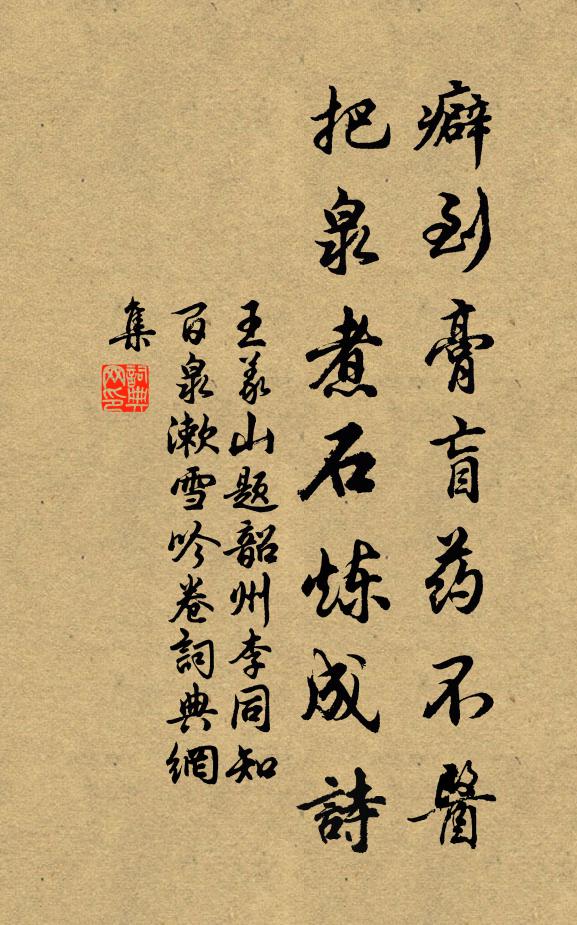 癖到膏肓药不醫
把泉煮石炼成詩
王義山题韶州李同知
百泉漱雪吟卷詞典網
集
詞典
网印